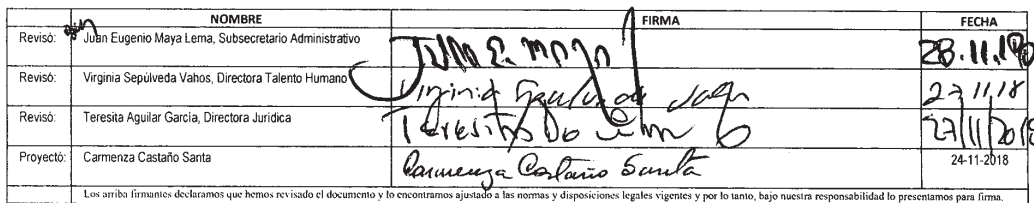 NOMBRE FIRMA FECHA
Revisó: Juan Eugenio Maya Lema, Subsecretario Administrativo Juan E. Maya 28.11.18
Revisó: Virginia Sepúlveda Vahos, Directora Talento Humano Virginia Sepúlveda Vahos 27 11/18
Revisó: Teresita Aguilar García, Directora Jurídica Teresita 27/11/2018
Proyectó: Carmenza Castaño Santa Carmenza Castaño Santa 24-11-2018
Los arriba firmantes declaramos que hemos revisado el documento y lo encontramos ajustado a las normas y disposiciones legales vigentes y por lo tanto, bajo nuestra responsabilidad lo presentamos para firma.